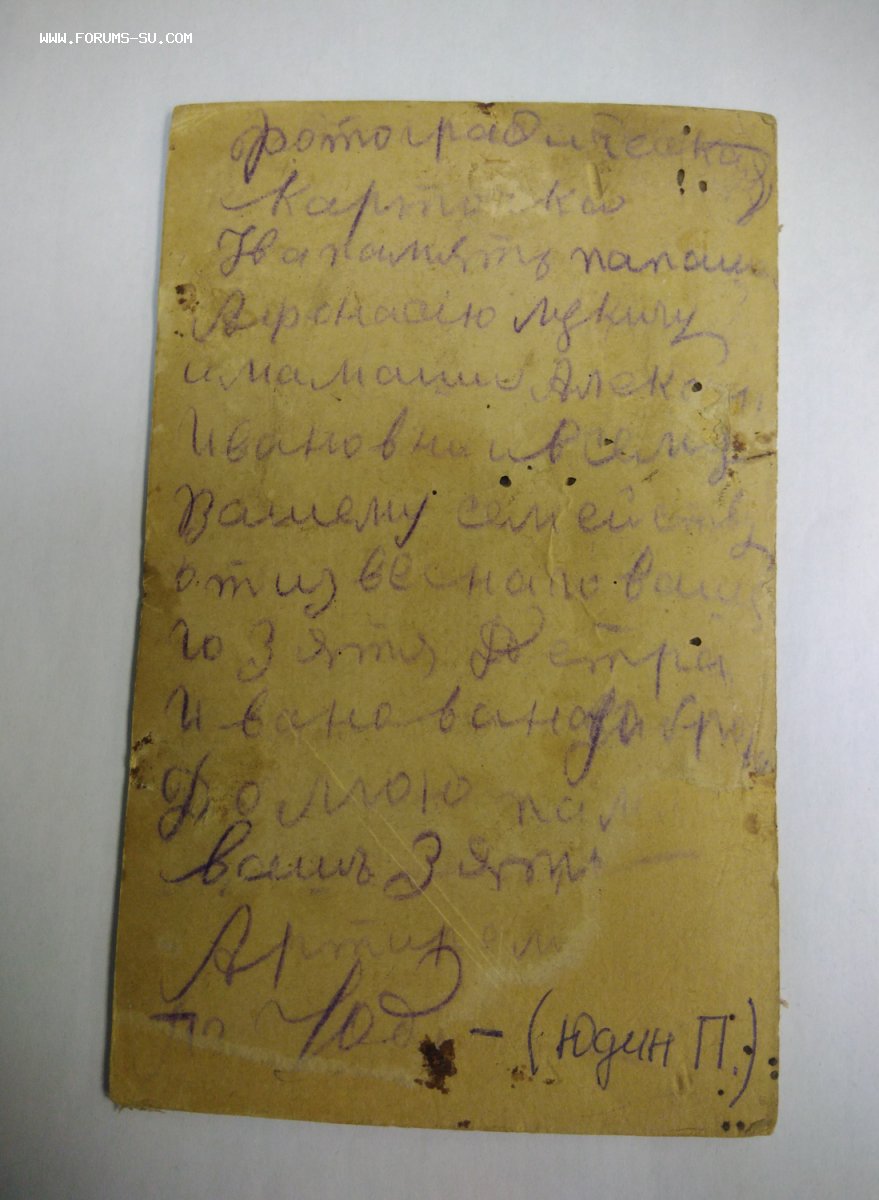 WWW.FORUMS-SU.COM
Фотографическа
Карточка
На память папаш
Афонасію Лукичу
и мамаши Алекс
Ивановны и всему
Вашему семейству
от извеснаго ваше
го Зятя Петра
Ивановича
вашъ Зять
Артиром
— (Юдин П.)